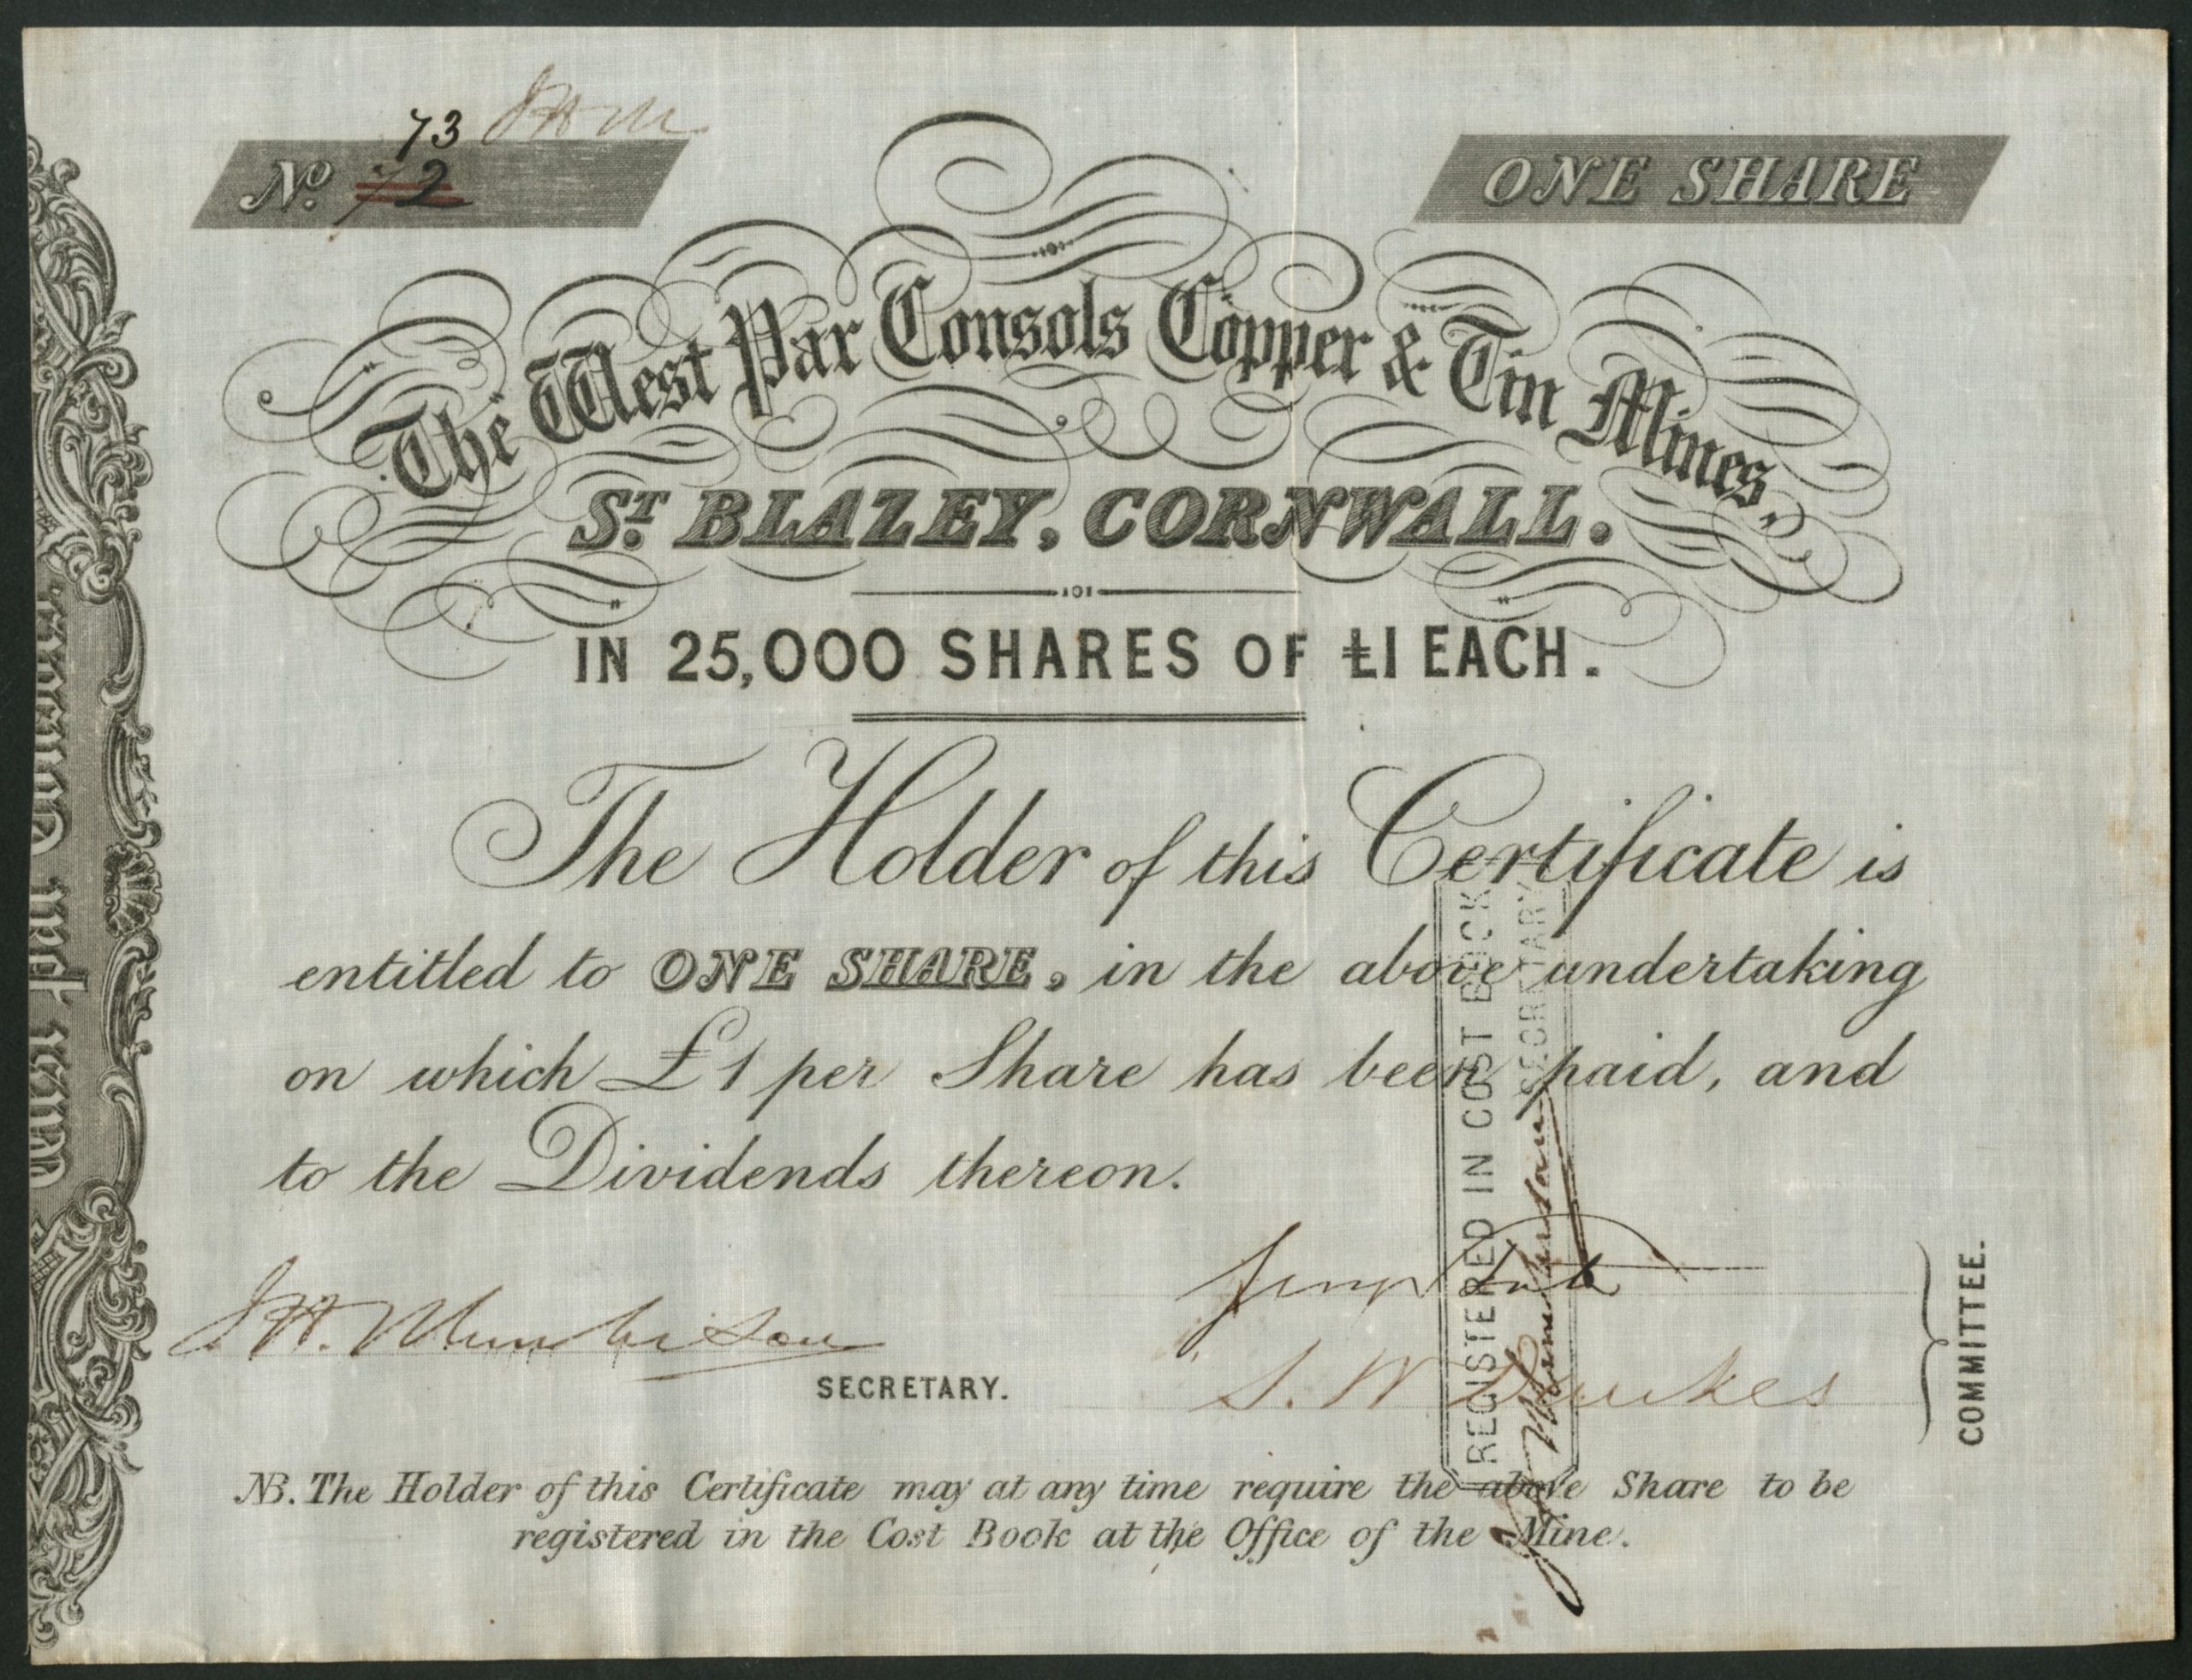 73 JHM
No. 72
ONE SHARE
The West Par Consols Copper & Tin Mines,
ST. BLAZEY, CORNWALL.
IN 25,000 SHARES OF £1 EACH.
The Holder of this Certificate is
entitled to ONE SHARE, in the above undertaking
on which £1 per Share has been paid, and
to the Dividends thereon.
J H. Murchison
SECRETARY.
S. W.
COMMITTEE.
NB. The Holder of this Certificate may at any time require the above Share to be
registered in the Cost Book at the Office of the Mine.
REGISTERED IN COST BOOK
J H Murchison SECRETARY
West Par Consols